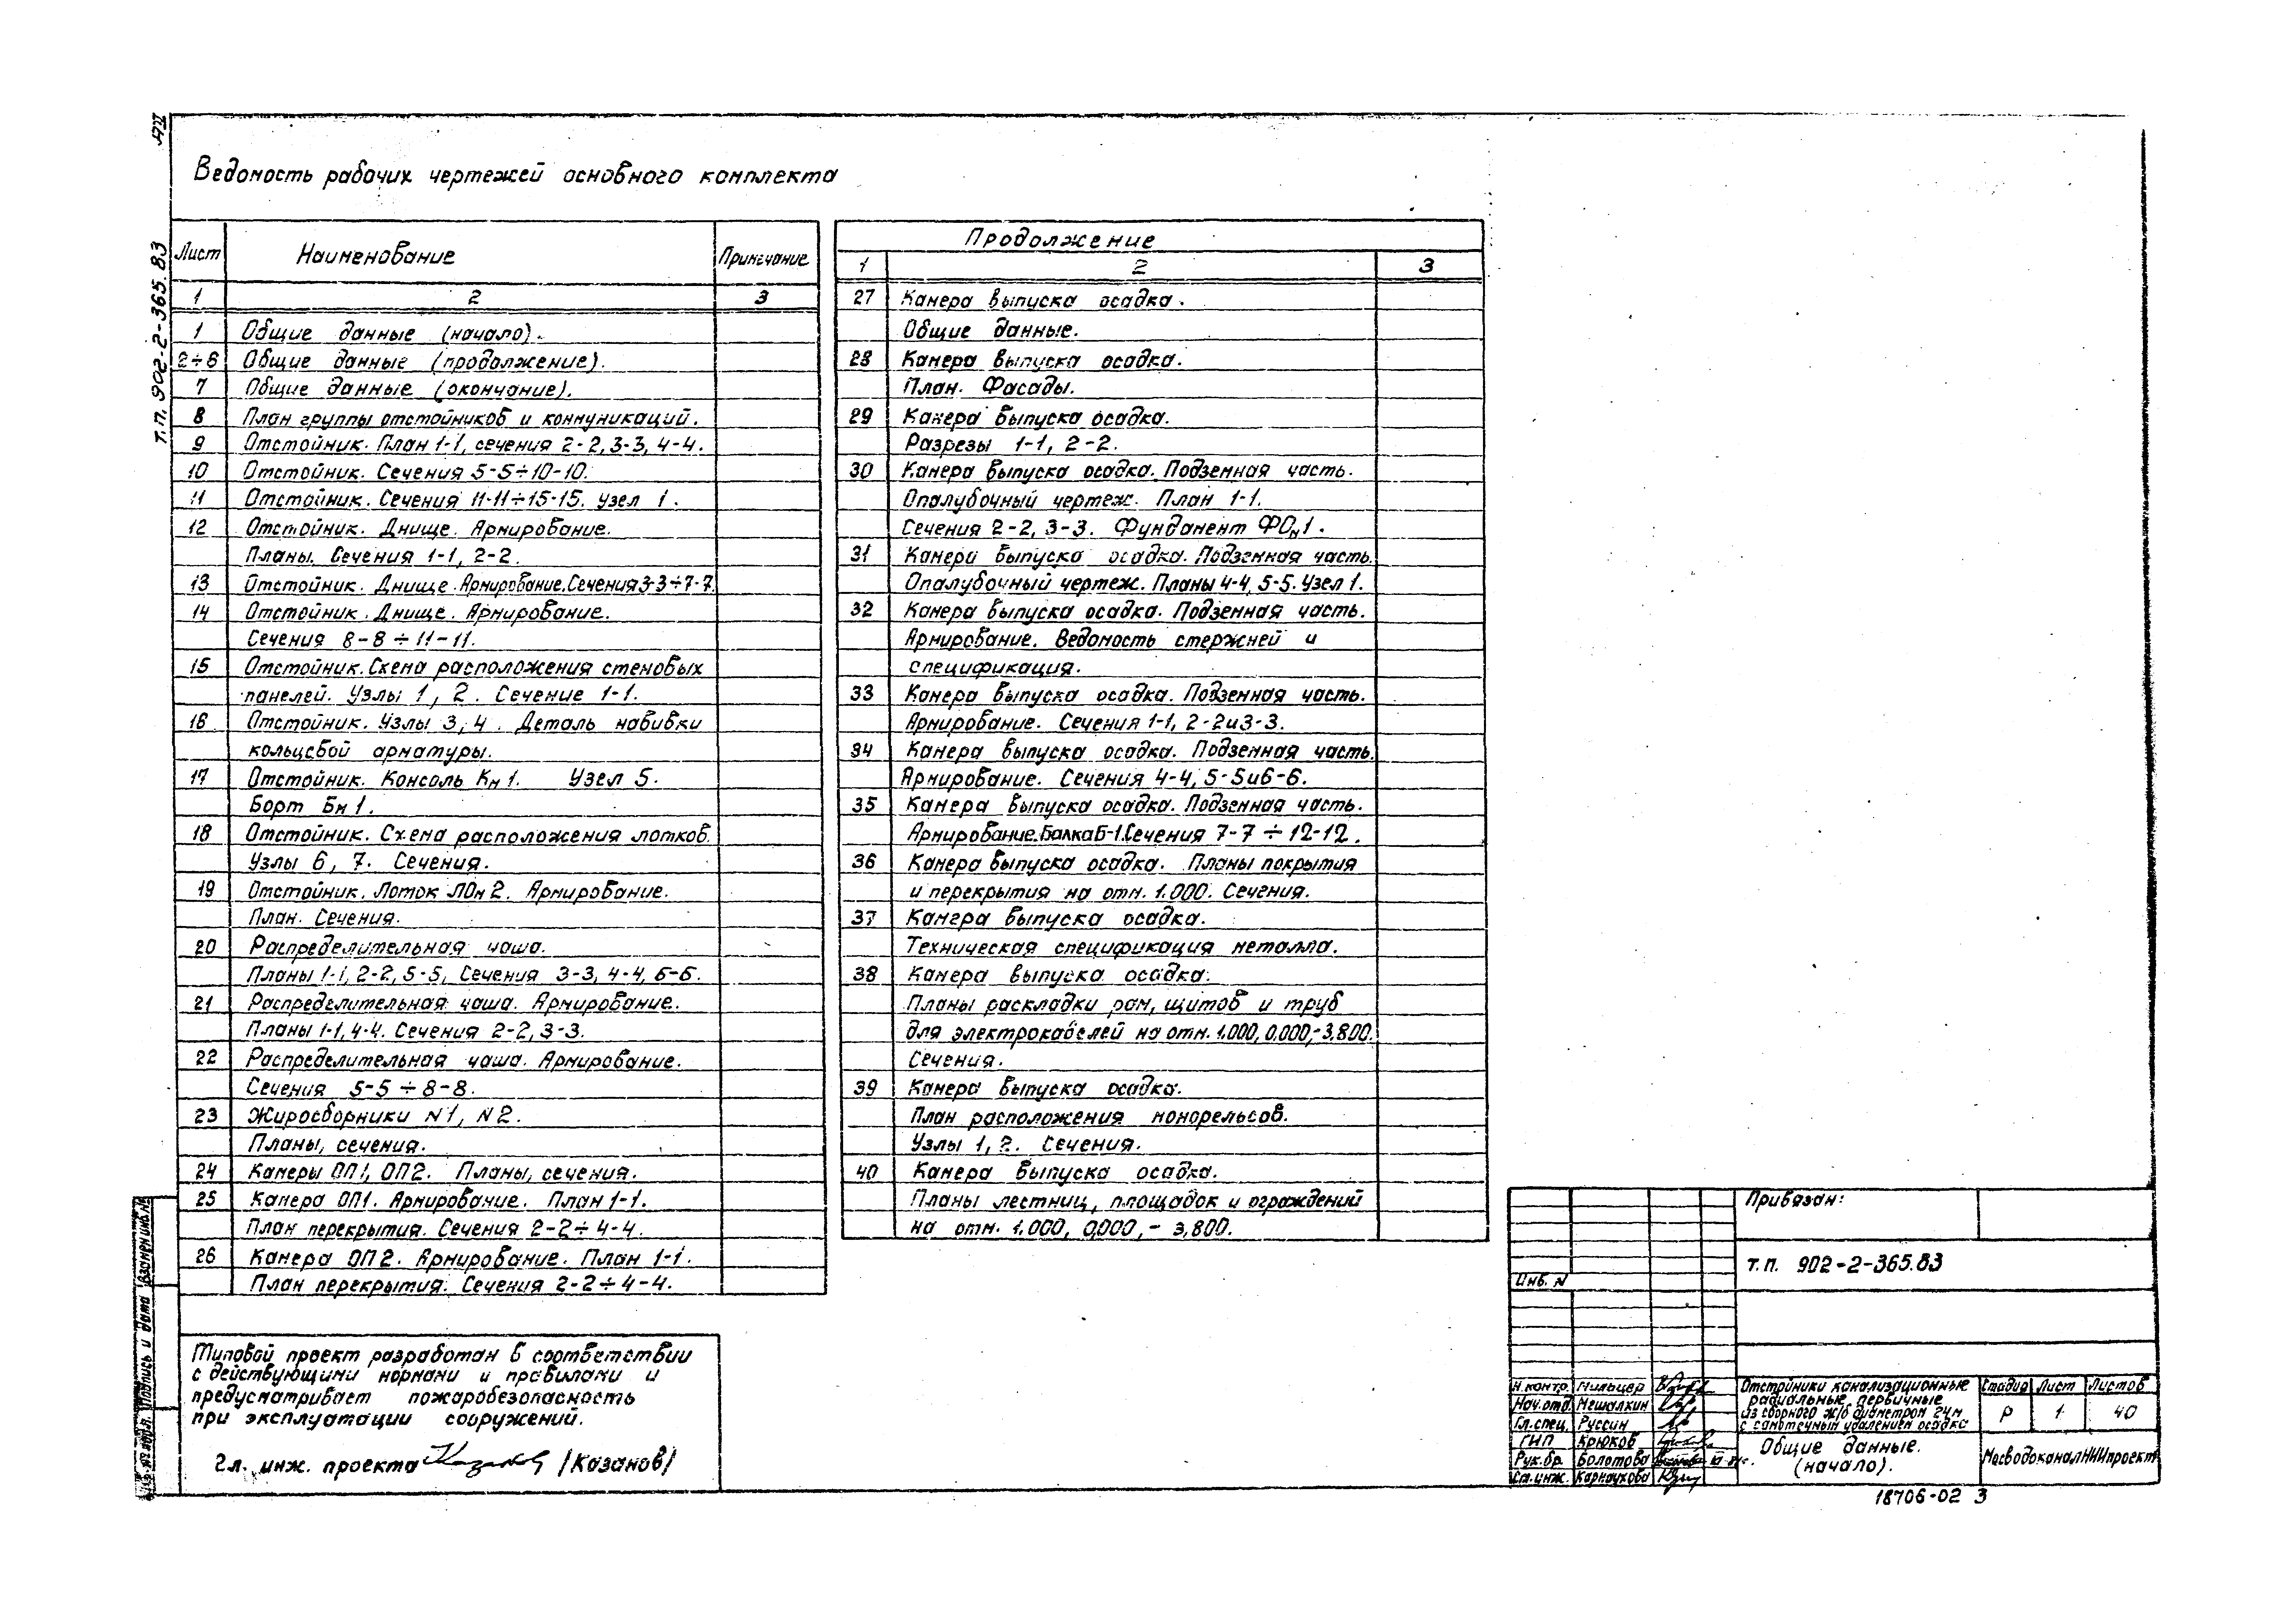 АII
т.п. 902-2-365.83
Ведомость рабочих чертежей основного комплекта
Лист Наименование Примечание
1 2 3
1 Общие данные (начало).
2÷6 Общие данные (продолжение).
7 Общие данные (окончание).
8 План группы отстойников и коммуникаций.
9 Отстойник. План 1-1, сечения 2-2, 3-3, 4-4.
10 Отстойник. Сечения 5-5÷10-10.
11 Отстойник. Сечения 11-11÷15-15. Узел 1.
12 Отстойник. Днище. Армирование.
Планы. Сечения 1-1, 2-2.
13 Отстойник. Днище. Армирование. Сечения 3-3÷7-7.
14 Отстойник. Днище. Армирование.
Сечения 8-8÷11-11.
15 Отстойник. Схема расположения стеновых
панелей. Узлы 1, 2. Сечение 1-1.
16 Отстойник. Узлы 3, 4. Деталь навивки
кольцевой арматуры.
17 Отстойник. Консоль Км1. Узел 5.
Борт Бм1.
18 Отстойник. Схема расположения лотков.
Узлы 6, 7. Сечения.
19 Отстойник. Лоток ЛОм2. Армирование.
План. Сечения.
20 Распределительная чаша.
Планы 1-1, 2-2, 5-5, Сечения 3-3, 4-4, 6-6.
21 Распределительная чаша. Армирование.
Планы 1-1, 4-4. Сечения 2-2, 3-3.
22 Распределительная чаша. Армирование.
Сечения 5-5÷8-8.
23 Жиросборники N1, N2.
Планы, сечения.
24 Камеры ОП1, ОП2. Планы, сечения.
25 Камера ОП1. Армирование. План 1-1.
План перекрытия. Сечения 2-2÷4-4.
26 Камера ОП2. Армирование. План 1-1.
План перекрытия. Сечения 2-2÷4-4.
Продолжение
1 2 3
27 Камера выпуска осадка.
Общие данные.
28 Камера выпуска осадка.
План. Фасады.
29 Камера выпуска осадка.
Разрезы 1-1, 2-2.
30 Камера выпуска осадка. Подземная часть.
Опалубочный чертеж. План 1-1.
Сечения 2-2, 3-3. Фундамент ФОм1.
31 Камера выпуска осадка. Подземная часть.
Опалубочный чертеж. Планы 4-4, 5-5. Узел 1.
32 Камера выпуска осадка. Подземная часть.
Армирование. Ведомость стержней и
спецификация.
33 Камера выпуска осадка. Подземная часть.
Армирование. Сечения 1-1, 2-2 и 3-3.
34 Камера выпуска осадка. Подземная часть.
Армирование. Сечения 4-4, 5-5 и 6-6.
35 Камера выпуска осадка. Подземная часть.
Армирование. Балка Б-1. Сечения 7-7÷12-12.
36 Камера выпуска осадка. Планы покрытия
и перекрытия на отм. 1.000. Сечения.
37 Камера выпуска осадка.
Техническая спецификация металла.
38 Камера выпуска осадка.
Планы раскладки рам, щитов и труб
для электрокабелей на отм. 1.000, 0.000, -3.800.
Сечения.
39 Камера выпуска осадка.
План расположения монорельсов.
Узлы 1, 2. Сечения.
40 Камера выпуска осадка.
Планы лестниц, площадок и ограждений
на отм. 1.000, 0,000, - 3,800.
Типовой проект разработан в соответствии
с действующими нормами и правилами и
предусматривает пожаробезопасность
при эксплуатации сооружений.
Гл. инж. проекта /Казанов/
Привязан:
т.п. 902-2-365.83
Инб. N
Н.контр. Мильцер
Нач.отд. Мешалкин
Гл.спец. Руссин
ГИП Крюков
Рук.бр. Болотова
Ст.инж. Карнаухова
Отстойники канализационные
радиальные первичные
из сборного ж/б диаметром 24м
с самотечным удалением осадка
Стадия Лист Листов
Р 1 40
Общие данные.
(начало).
МосводоканалНИИпроект
18706-02 3
Взамен инв.N
Подпись и дата